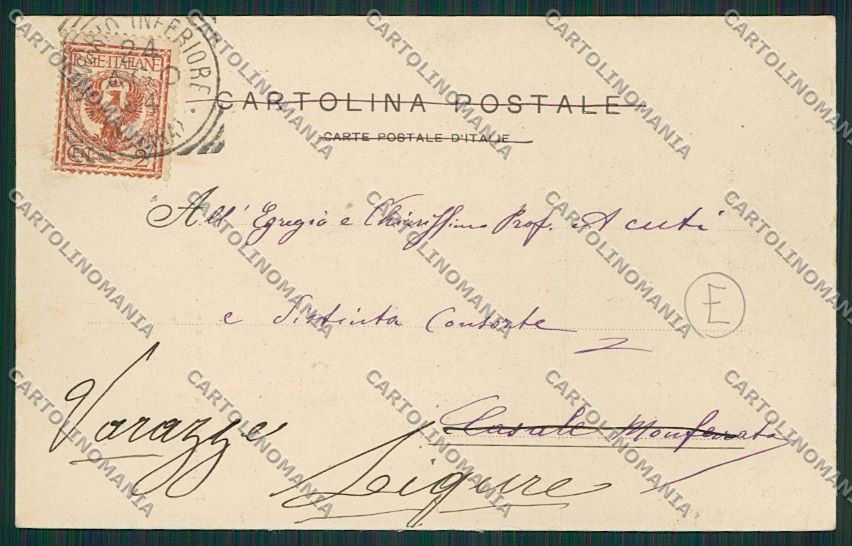 INFERIORE
24
POSTE·ITALIANE
2 2
CARTOLINA POSTALE
CARTE POSTALE D'ITALIE
All' Egregio e Chiarissimo Prof. Acuti
e Distinta Consorte
E
Casale Monferrato
Varazze
Ligure
CARTOLINOMANIA